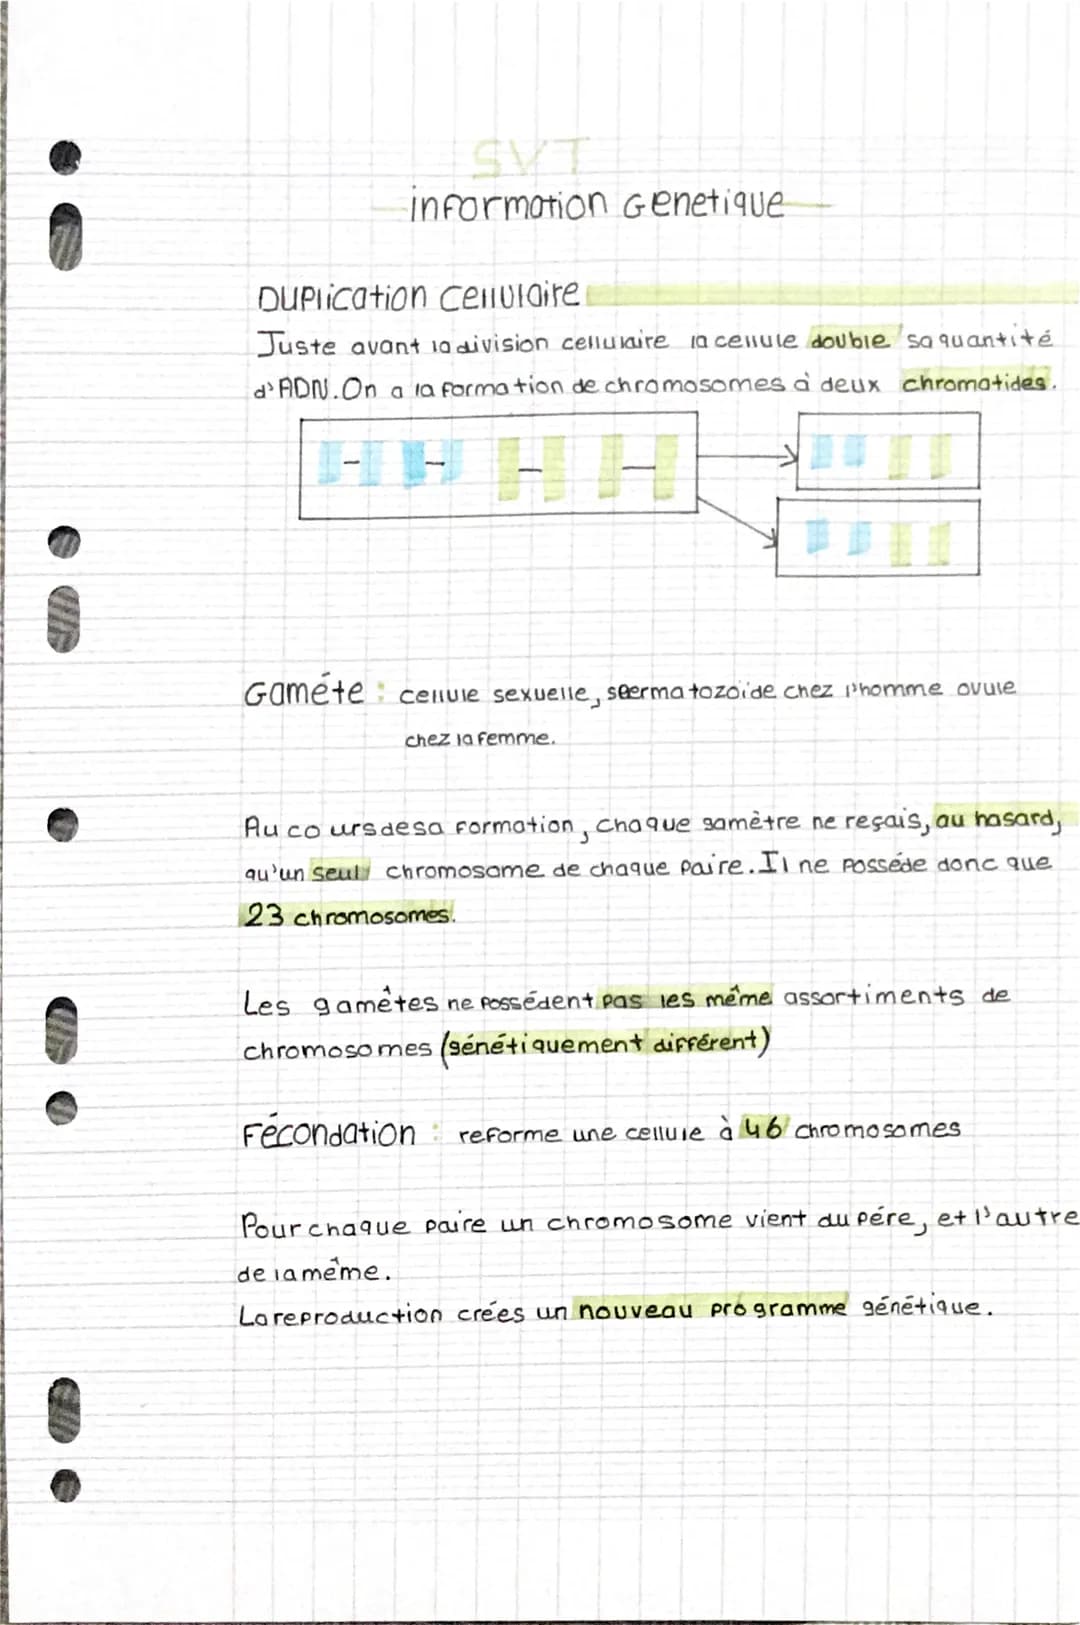 SVT
information Genetique
Duplication cellulaire
Juste avant la division cellulaire la cellule double sa quantité
d'ADN. On a la formation de chromosomes à deux chromatides.
Gaméte : cellule sexuelle, seermatozoïde chez l'homme ovule
chez la femme.
Au cours de sa formation, chaque gamètre ne reçais, au hasard,
qu'un seul chromosome de chaque paire. Il ne posséde donc que
23 chromosomes.
Les gamêtes ne possédent pas les même assortiments de
chromosomes (génétiquement différent)
Fécondation : reforme une cellule à 46 chromosomes
Pour chaque paire un chromosome vient du pére, et l'autre
de la même.
La reproduction crées un nouveau programme génétique.